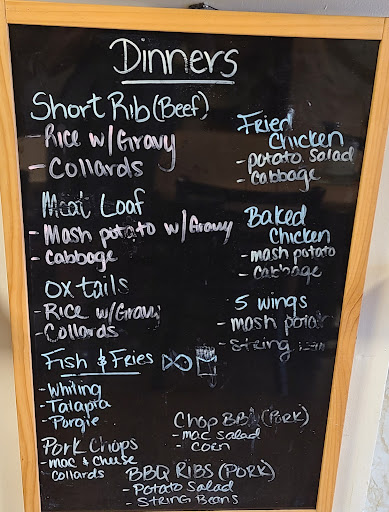 Dinners
Short Rib (Beef)
- Rice w/ Gravy
- Collards
Meat Loaf
- Mash potato w/ Gravy
- Cabbage
Ox tails
- Rice w/ Gravy
- Collards
Fish & Fries
- Whiting
- Talapia
- Porgie
Pork Chops
- Mac & Cheese
Collards
Fried
Chicken
- Potato Salad
- Cabbage
Baked
Chicken
- mash potato
- Cabbage
5 wings
- mash potato
- String
Chop BBQ (Pork)
- mac salad
- corn
BBQ RIBS (PORK)
- Potato Salad
- String Beans